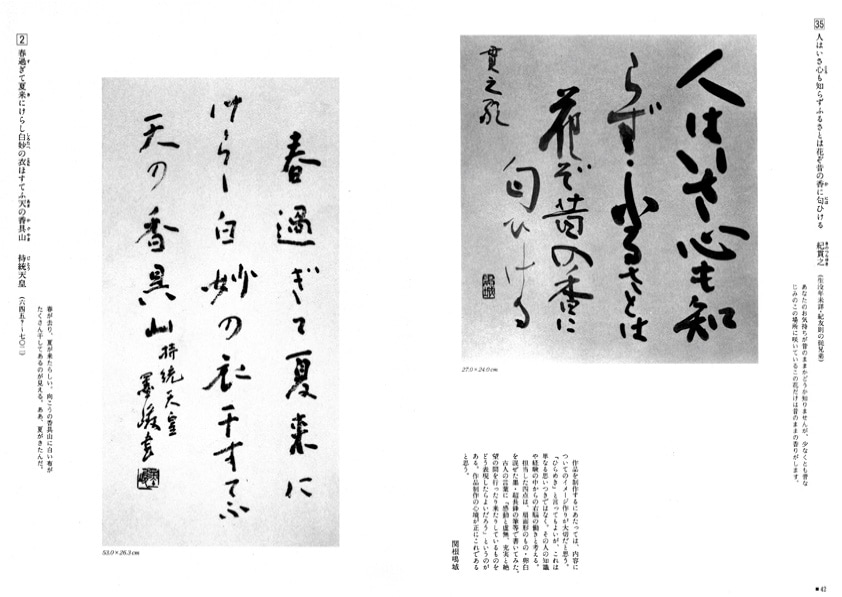 35
人はいさ心も知らずふるさとは花ぞ昔の香に匂ひける　紀貫之（生没年未詳・紀友則の従兄弟）
あなたのお気持ちが昔のままかどうか知りませんが、少なくとも昔な
じみのこの場所に咲いているこの花だけは昔のままの香りがします。
人はいさ心も知
らずふるさとは
花ぞ昔の香に
匂ひける
貫之歌
27.0×24.0cm
作品を制作するにあたっては、内容に
ついてのイメージ作りが大切だと思う。
「ひらめき」と言ってもよいが、これは
単なる思いつきではなく、その人の知識
や経験の中からの右脳の働きと考える。
担当した四点は、扇面形のもの・卵白
を混ぜた墨・超長鋒の筆等で書いてみた。
古人の言葉に「感動と虚無、充実と絶
望の間を行ったり来たりしているものを
どう表現したらよいだろう」というのが
ある。作品制作の心境が正にこれである
と思う。
関根鳴城
41
2
春過ぎて夏来にけらし白妙の衣ほすてふ天の香具山　持統天皇（六四五?〜七〇二）
春が去り、夏が来たらしい。向こうの香具山に白い布が
たくさん干してあるのが見える。ああ、夏がきたんだ。
春過ぎて夏来に
けらし白妙の衣干すてふ
天の香具山
持統天皇
53.0×26.3cm